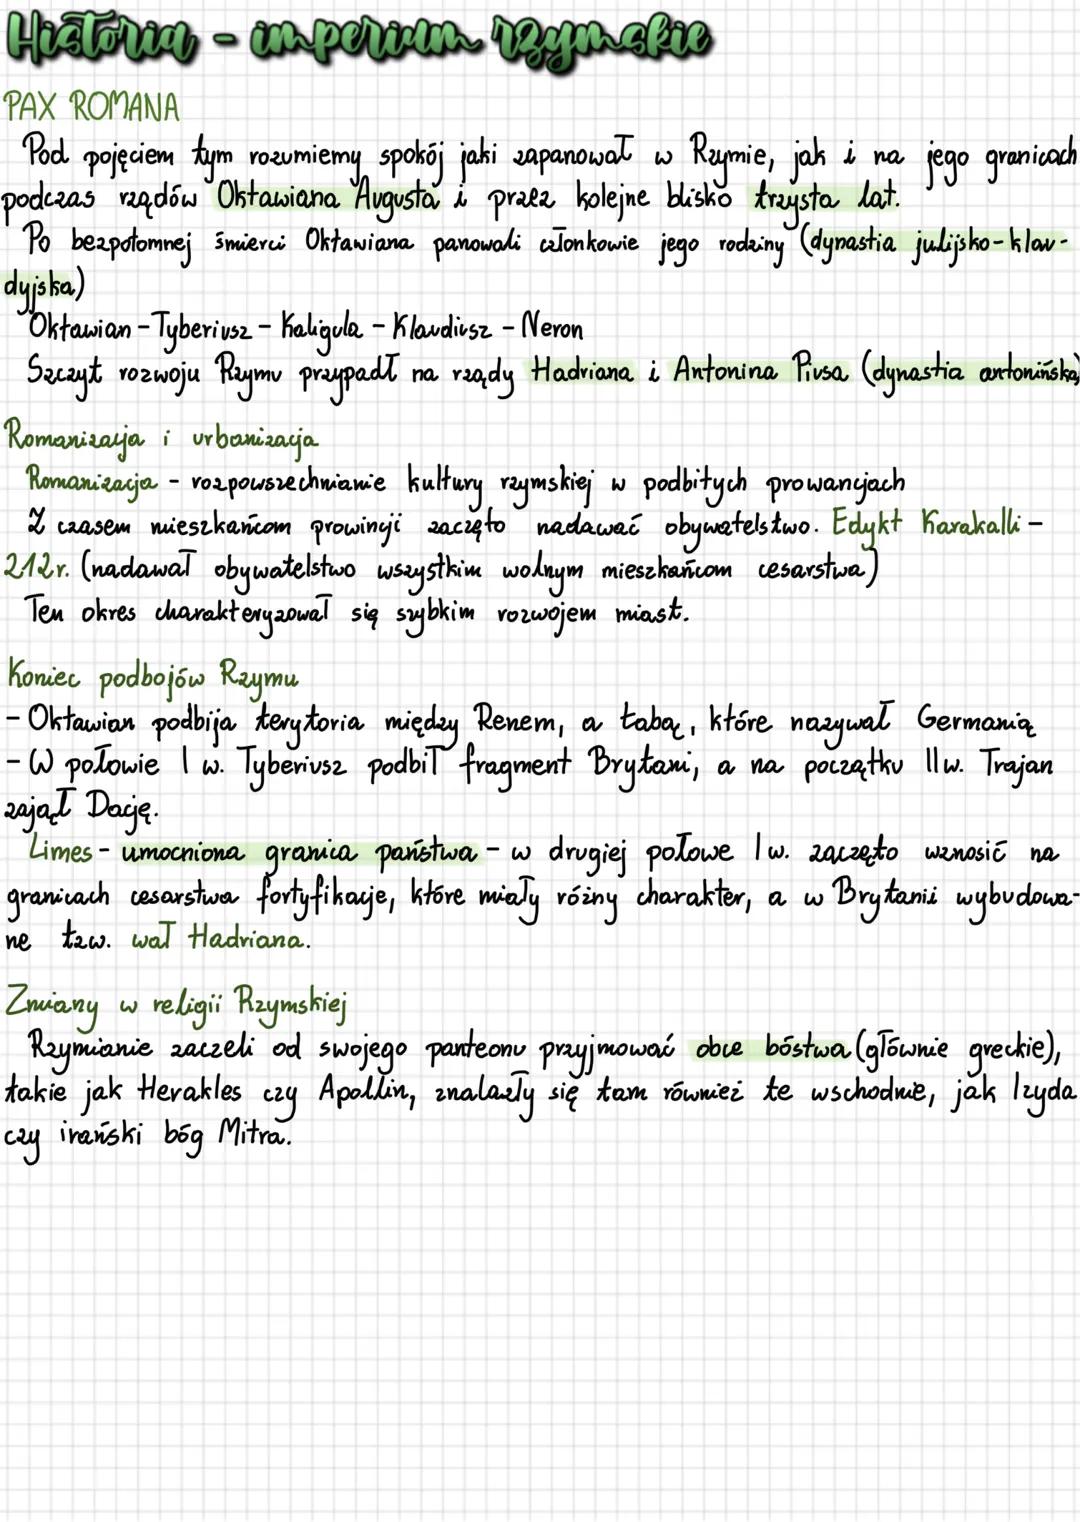 Historia - imperium rzymskie
PAX ROMANA
Pod pojęciem tym rozumiemy spokój jaki zapanował w Rzymie, jak i na jego granicach
podczas rządów Oktawiana Augusta i przez kolejne blisko trzysta lat.
Po bezpotomnej śmierci Oktawiana panowali członkowie jego rodziny (dynastia julijsko-klau-
dyjska)
Oktawian - Tyberiusz - Kaligula - Klaudiusz - Neron
Szczyt rozwoju Rzymu przypadł na rządy Hadriana i Antonina Piusa (dynastia antonińska)
Romanizacja i urbanizacja
Romanizacja - rozpowszechnianie kultury rzymskiej w podbitych prowancjach
Z czasem mieszkańcom prowincji zaczęto nadawać obywatelstwo. Edykt Karakalli -
212r. (nadawał obywatelstwo wszystkim wolnym mieszkańcom cesarstwa)
Ten okres charakteryzował się szybkim rozwojem miast.
Koniec podbojów Rzymu
- Oktawian podbija terytoria między Renem, a Łabą, które nazywał Germanią
- W połowie I w. Tyberiusz podbił fragment Brytani, a na początku II w. Trajan
zajął Dację.
Limes - umocniona granica państwa - w drugiej połowe I w. zaczęto wznosić na
granicach cesarstwa fortyfikacje, które miały różny charakter, a w Brytanii wybudowa-
ne tzw. wał Hadriana.
Zmiany w religii Rzymskiej
Rzymianie zaczeli od swojego panteonu przyjmować obce bóstwa (głównie greckie),
takie jak Herakles czy Apollin, znalazły się tam również te wschodnie, jak Izyda
czy irański bóg Mitra.